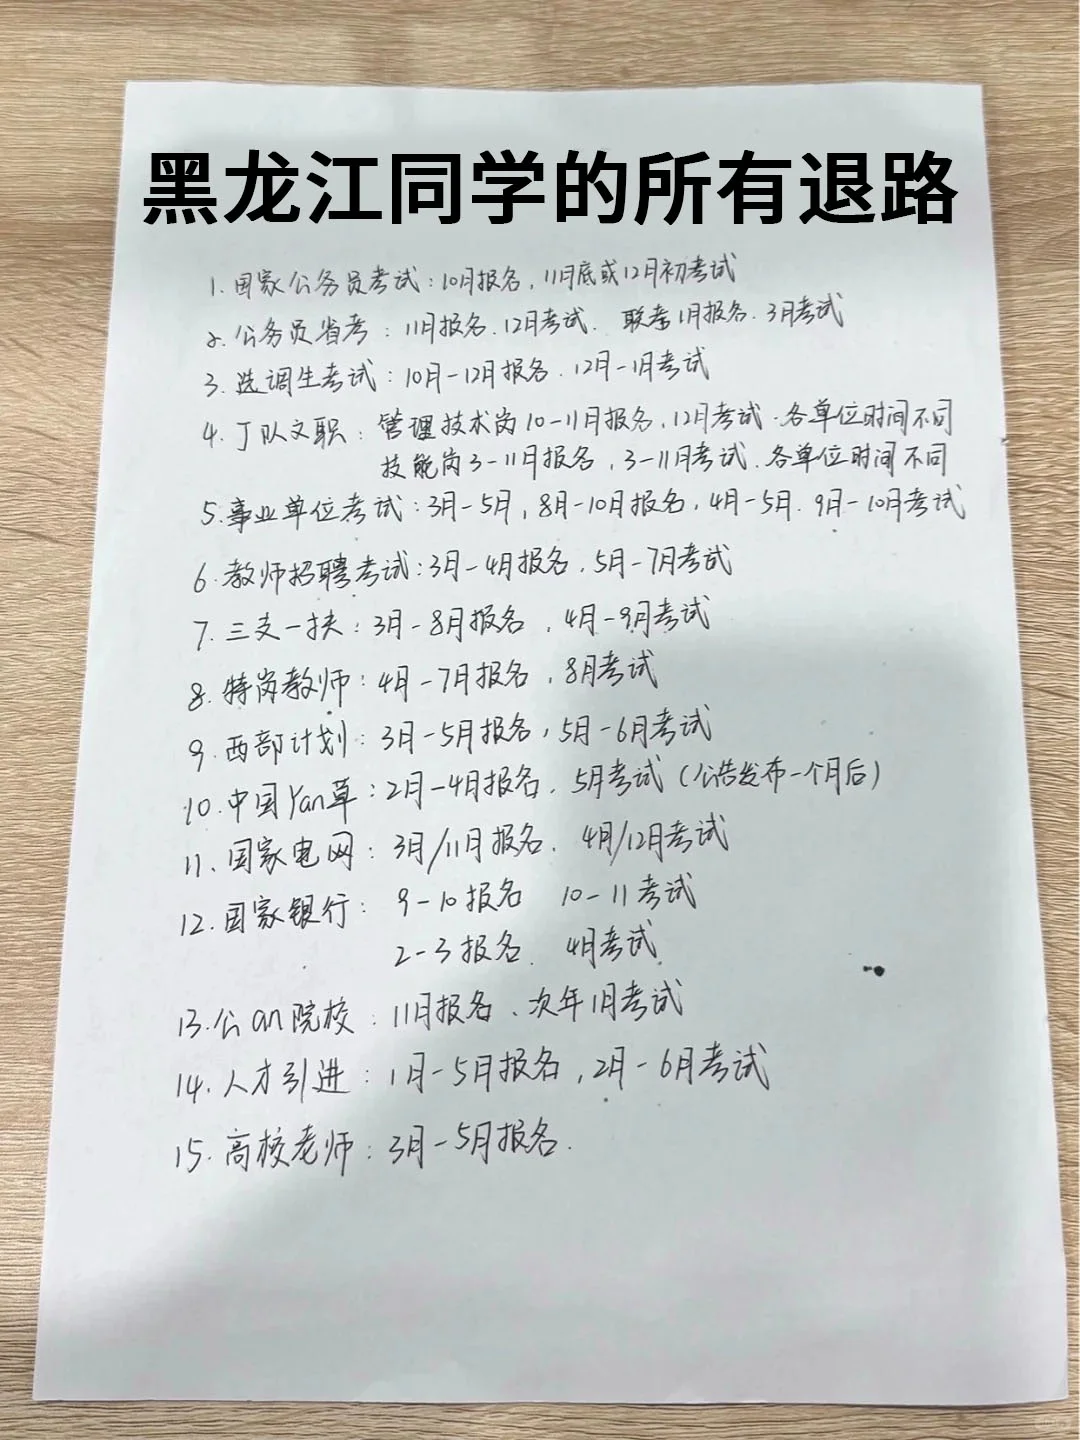 黑龙江同学的所有退路
1.国家公务员考试：10月报名，11月底或12月初考试
2.公务员省考：11月报名.12月考试. 联考1月报名.3月考试
3.选调生考试：10月-12月报名.12月-1月考试
4.J队文职：管理技术岗10-11月报名，12月考试.各单位时间不同
技能岗3-11月报名，3-11月考试.各单位时间不同
5.事业单位考试：3月-5月，8月-10月报名，4月-5月.9月-10月考试
6.教师招聘考试：3月-4月报名，5月-7月考试
7.三支一扶：3月-8月报名，4月-9月考试
8.特岗教师：4月-7月报名，8月考试
9.西部计划：3月-5月报名，5月-6月考试
10.中国Yan草：2月-4月报名，5月考试（公告发布一个月后）
11.国家电网：3月/11月报名. 4月/12月考试
12.国家银行：9-10报名 10-11考试
2-3报名. 4月考试
13.公an院校：11月报名、次年1月考试
14.人才引进：1月-5月报名，2月-6月考试
15.高校老师：3月-5月报名.